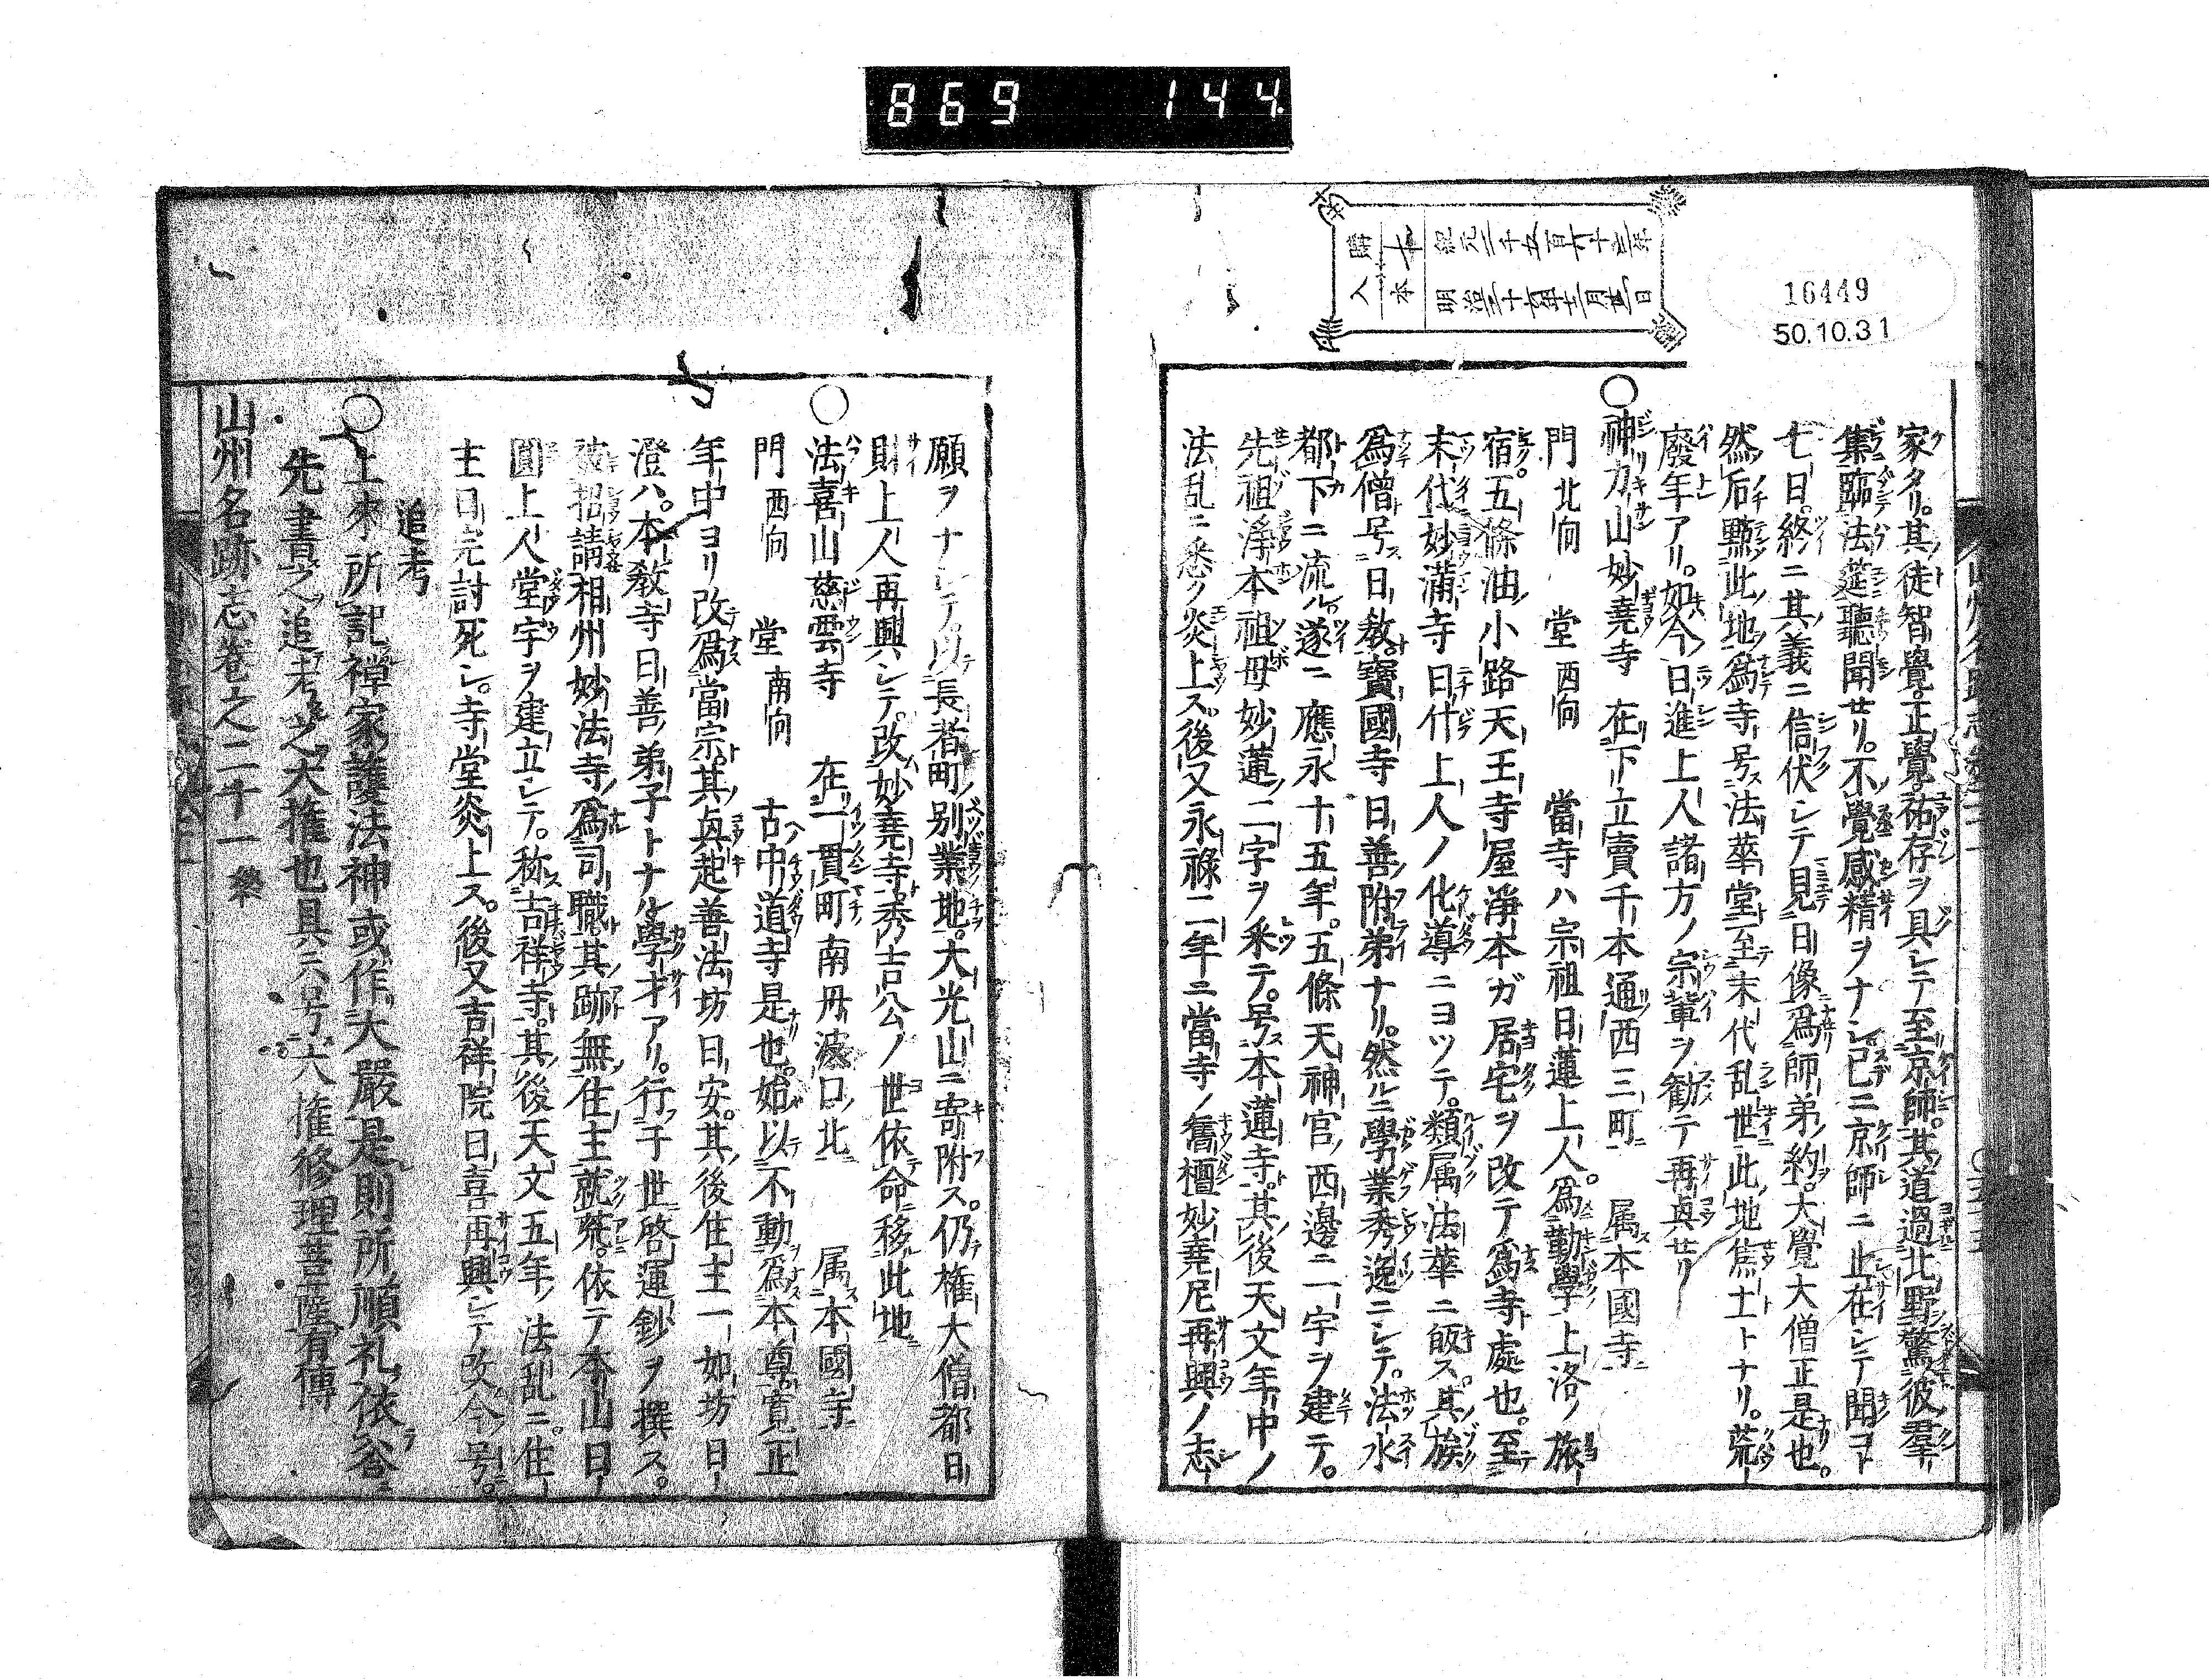 869 144
16449
50.10.31
家タリ。其徒智覺。正覺。祐存ヲ具シテ至京師。其道過北野驚彼羣
集臨法莚聽聞セリ。不覺感精ヲナシ已ニ京師ニ止在シテ聞コト
七日。終ニ其義ニ信伏シテ見日像爲師弟約。大覺大僧正是也。
然后點此地爲寺号法華堂至末代乱世此地焦土トナリ。荒
廢年アリ。如今日進上人諸方ノ宗輩ヲ勧テ再興セリ
○神力山妙堯寺 在下立賣千本通西三町 属本國寺
門北向 堂西向 當寺ハ宗祖日蓮上人。爲勤學上洛ノ旅
宿。五條油小路天王寺屋淨本ガ居宅ヲ改テ爲寺處也。至
末代妙滿寺日什上人ノ化導ニヨツテ。類属法華ニ皈ス。其族
爲僧号日敎。寶國寺日善附弟ナリ。然ルニ學業秀逸ニシテ。法水
都下ニ流ル遂ニ應永十五年。五條天神宮西邊ニ一宇ヲ建テ。
先祖淨本祖母妙蓮二字ヲ釆テ。号本蓮寺。其後天文年中ノ
法乱ニ悉ク炎上ス。後又永祿二年ニ當寺ノ舊檀妙堯尼再興ノ志
願ヲナシテ。以長者町別業地。大光山ニ寄附ス。仍權大僧都日
財上人再興シテ。改妙堯寺。秀吉公ノ世依命移此地
○法喜山慈雲寺 在一貫町南丹波口北 属本國寺
門西向 堂南向 古中道寺是也。始以不動爲本尊寛正
年中ヨリ改爲當宗。其興起善法坊日安。其後住主一如坊日
澄ハ。本敎寺日善弟子トナル學才アリ。行于世啓運鈔ヲ撰ス。
被招請相州妙法寺爲司職其跡無住主就荒。依テ本山日
圓上人堂宇ヲ建立シテ。称吉祥寺。其後天文五年法乱ニ。住
主日完討死シ。寺堂炎上ス。後又吉祥院日喜再興シテ改今号。
追考
○上來所記禪家護法神或作大嚴是則所順礼依谷
先書之追考之大權也具云号大權修理菩薩有傳
山州名跡志卷之二十一終